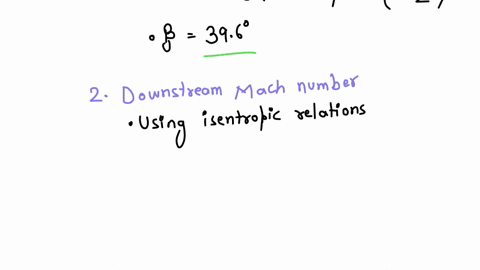 • β = 39.6°
2. Downstream Mach number
• Using isentropic relations